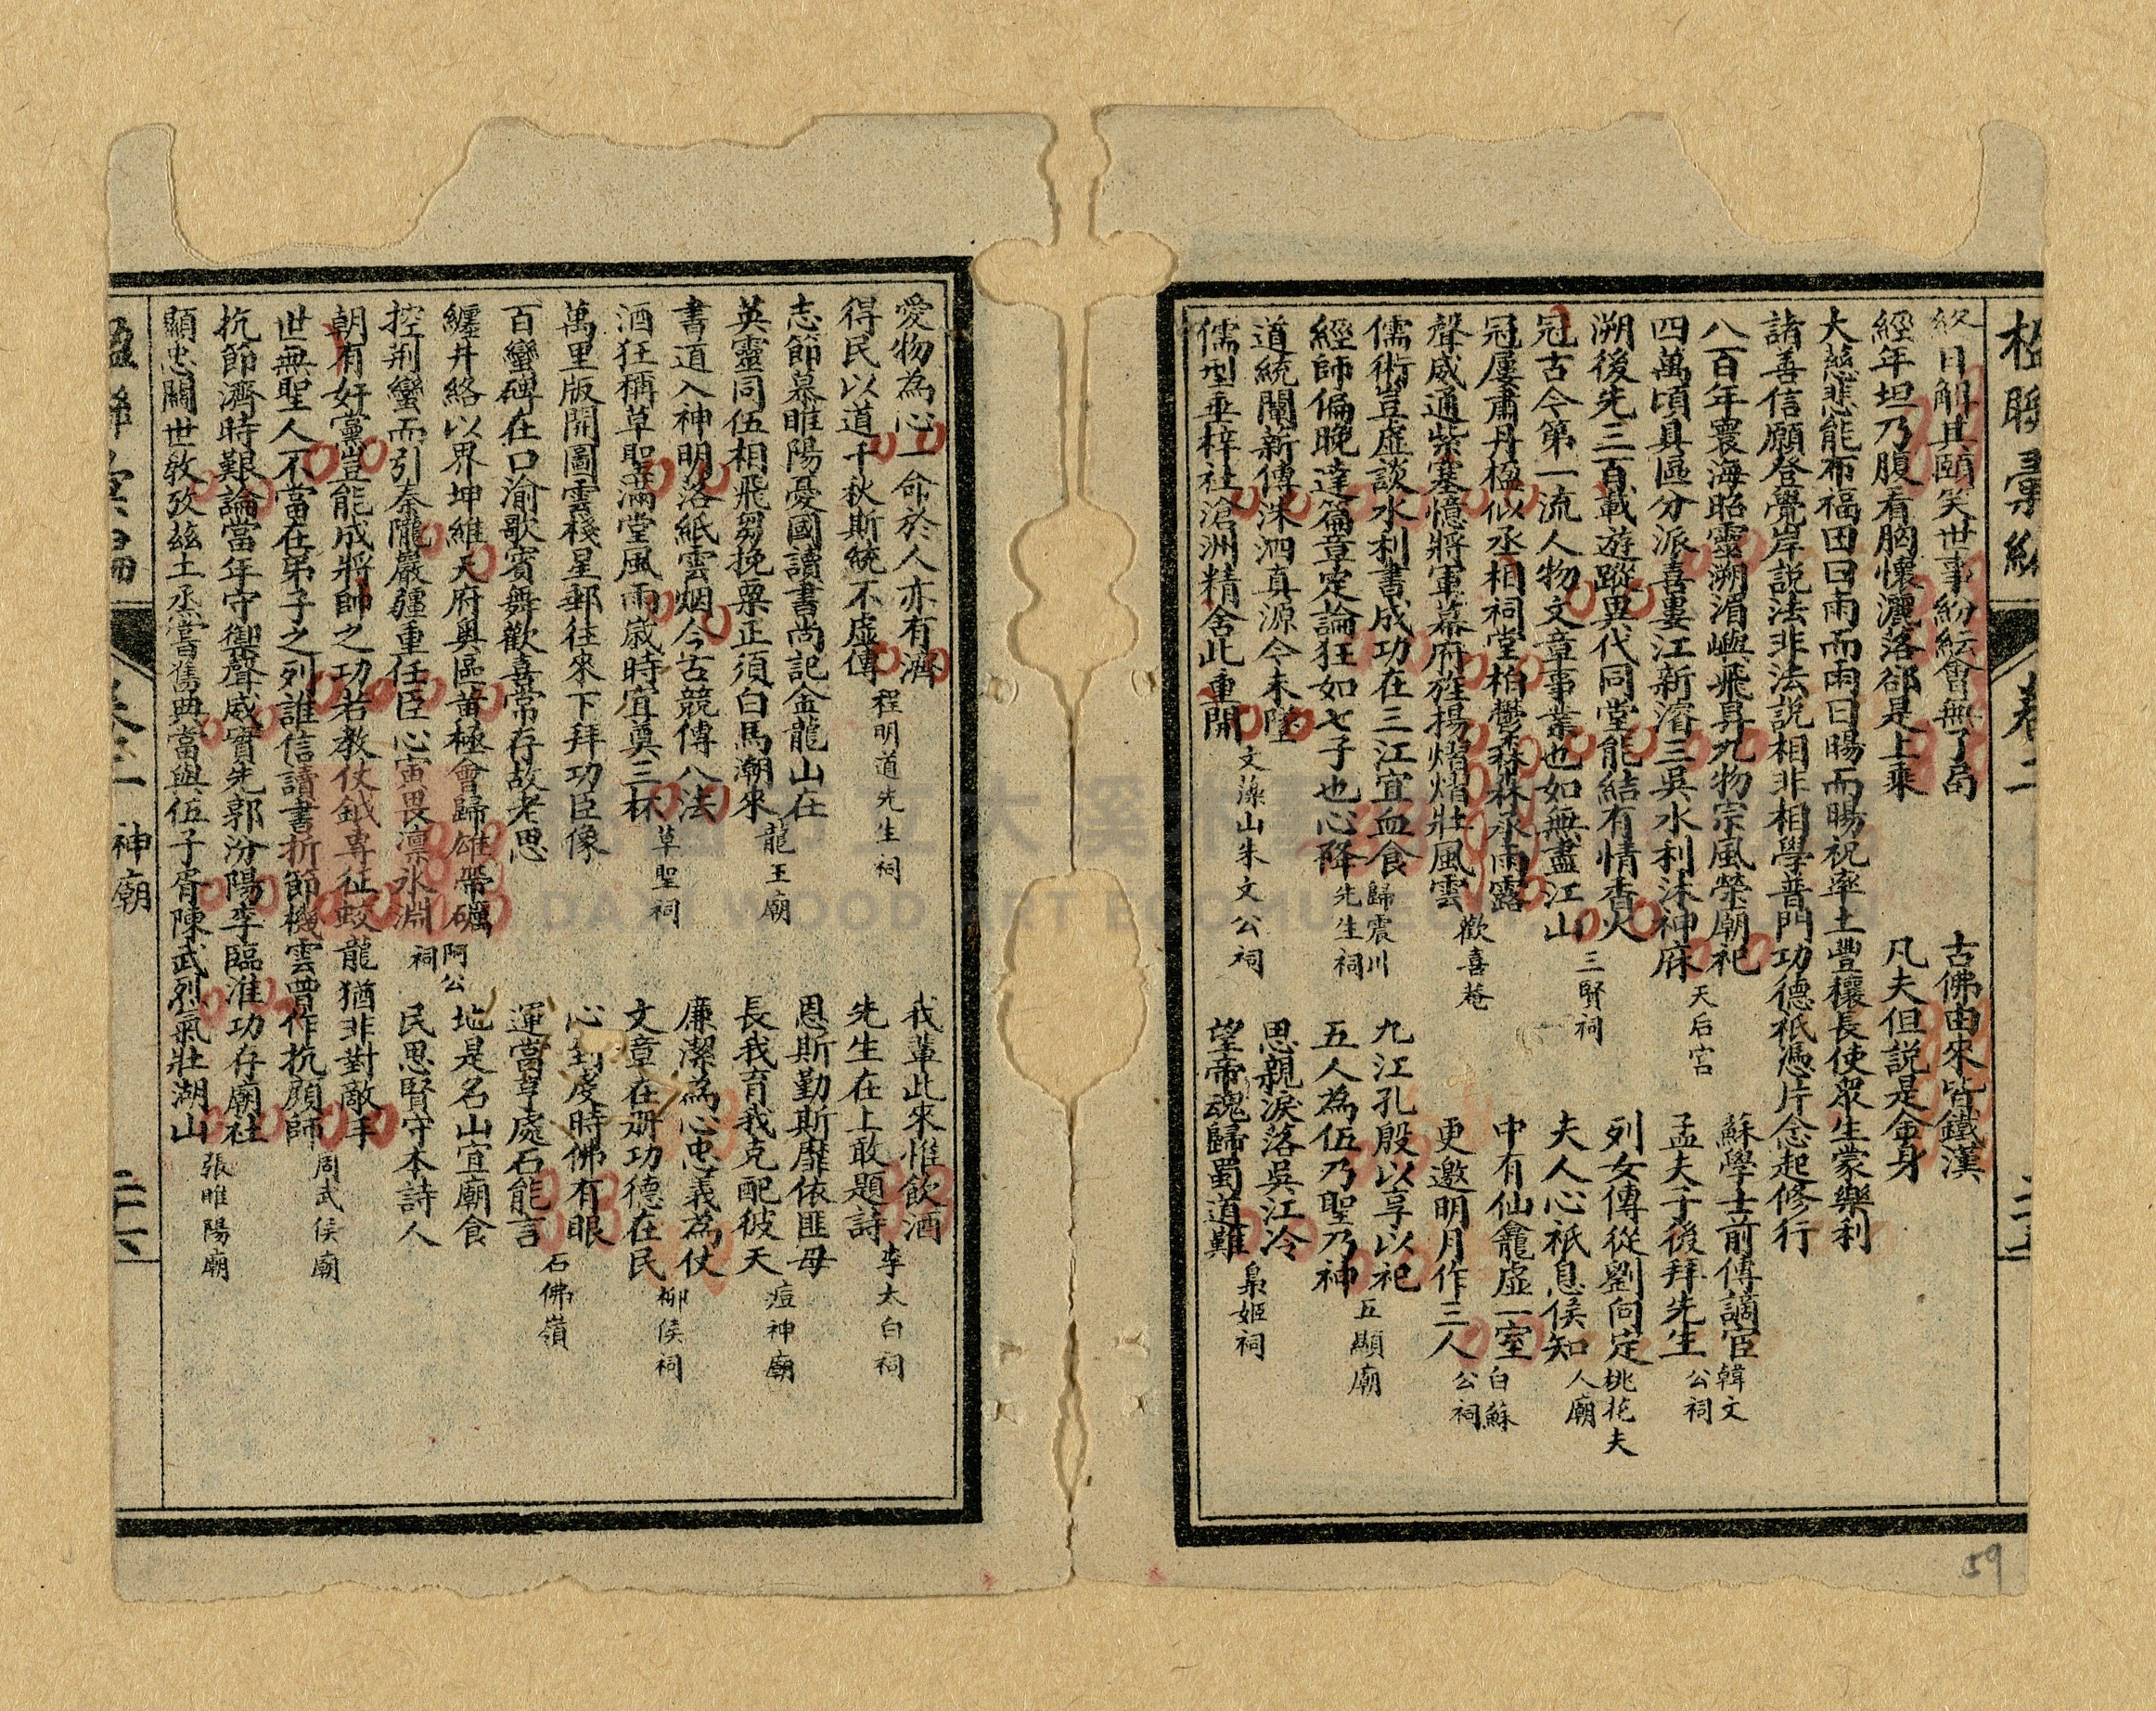 楹聯彙編 卷二
終日解其頤笑世事紛紜曾無了局 古佛由來皆鐵漢
經年坦乃腹看胸懷灑落都是上乘 凡夫但説是金身
大慈悲能布福田曰雨而雨曰暘而暘祝率土豐穰長使眾生蒙樂利
諸善信願登覺岸説法非法説相非相學普門功德祇憑片念起修行
八百年震海昭靈溯湄嶼飛昇九物宗風榮廟祀 天后宮 蘇學士前傳謫宦
四萬頃具區分派喜婁江新濬三吳水利沐神庥 孟夫子後拜先生 韓文公祠
溯後先三百載遊蹤異代同堂能結有情香火 三賢祠 列女傳從劉向定
冠古今第一流人物文章事業也如無盡江山 夫人心祇息侯知 桃花夫人廟
冠屨肅丹楹似丞相祠堂柏鬱森森承雨露 歡喜菴 中有仙龕虛一室
聲威通紫塞憶將軍幕府旌揚熠熠壯風雲 更邀明月作三人 白蘇公祠
儒術豈虛談水利書成功在三江宜血食 歸震川先生祠 九江孔殷以享以祀
經師偏晚達篇章定論狂如七子也心降 五人為伍乃聖乃神 五顯廟
道統闡新傳洙泗真源今未墜 文藻山朱文公祠 思親淚落吳江冷
儒型垂梓社滄洲精舍此重開 望帝魂歸蜀道難 梟姬祠
愛物為心一命於人亦有濟 程明道先生祠 我輩此來惟飲酒
得民以道千秋斯統不虛傳 先生在上敢題詩 李太白祠
志節慕睢陽憂國讀書尚記金龍山在 龍王廟 恩斯勤斯靡依匪母
英靈同伍相飛芻挽粟正須白馬潮來 長我育我克配彼天 痘神廟
書道入神明落紙雲烟今古競傳八法 草聖祠 廉潔為心忠義為仗
酒狂稱草聖滿堂風雨歲時宜奠三杯 文章在册功德在民 柳侯祠
萬里版開圖雲棧星郵往來下拜功臣像 心到虔時佛有眼
百蠻碑在口渝歌賓舞歡喜常存故老思 運當亨處石能言 石佛嶺
纏井絡以界坤維天府奥區黄極會歸雄帶礪 阿公祠 地是名山宜廟食
控荆蠻而引秦隴嚴疆重任臣心寅畏凛冰淵 民思賢守本詩人
朝有奸黨豈能成將帥之功若教仗鉞專征蛟龍猶非對敵手
世無聖人不當在弟子之列誰信讀書折節機雲曾作抗顔師 周武侯廟
抗節濟時艱論當年守禦聲威實先郭汾陽李臨淮功存廟社
顯忠關世教攷兹土烝嘗舊典當與伍子胥陳武烈氣壯湖山 張睢陽廟
神廟
59